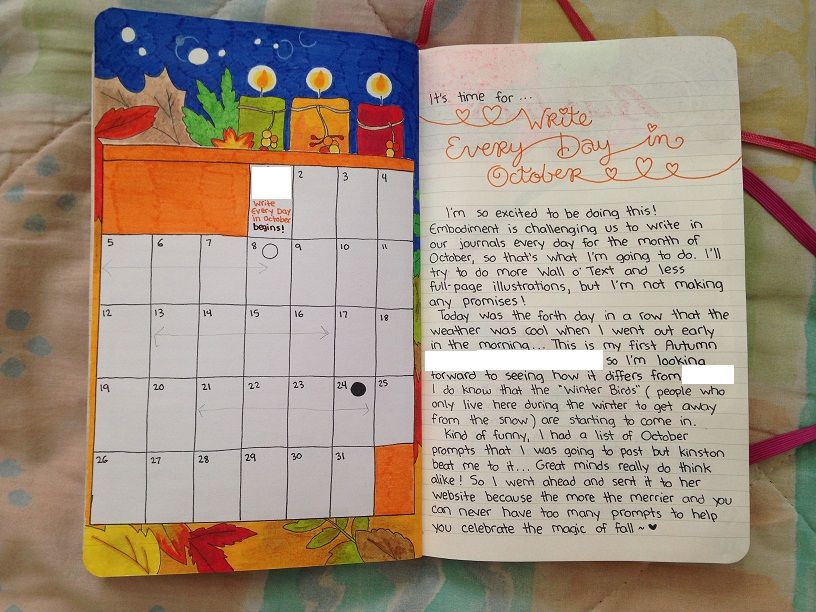 Write
Every Day
in October
begins!
2 3 4
5 6 7 8 9 10 11
12 13 14 15 16 17 18
19 20 21 22 23 24 25
26 27 28 29 30 31
It's time for ...
Write
Every Day in
October
I'm so excited to be doing this!
Embodiment is challenging us to write in
our journals every day for the month of
October, so that's what I'm going to do. I'll
try to do more Wall o' Text and less
full-page illustrations, but I'm not making
any promises!
Today was the forth day in a row that the
weather was cool when I went out early
in the morning... This is my first Autumn
so I'm looking
forward to seeing how it differs from
I do know that the "Winter Birds" (people who
only live here during the winter to get away
from the snow) are starting to come in.
Kind of funny, I had a list of October
prompts that I was going to post but kinston
beat me to it... Great minds really do think
alike! So I went ahead and sent it to her
website because the more the merrier and you
can never have too many prompts to help
you celebrate the magic of fall ~ ♥